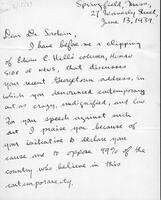 Springfield, Mass.
27 Waverly Street,
June 13, 1939.
Dear Dr.
I have before me a clipping
of Edwin C. Hill's column, Human
Side of News, that discusses
your recent Georgetown address, in
which you denounced contemporary
art as crazy, undignified, and low.
For your speech against such
art I praise you because of
your initiative to declare your
cause and to oppose 99% of the
country who believe in this
contemporaneity.